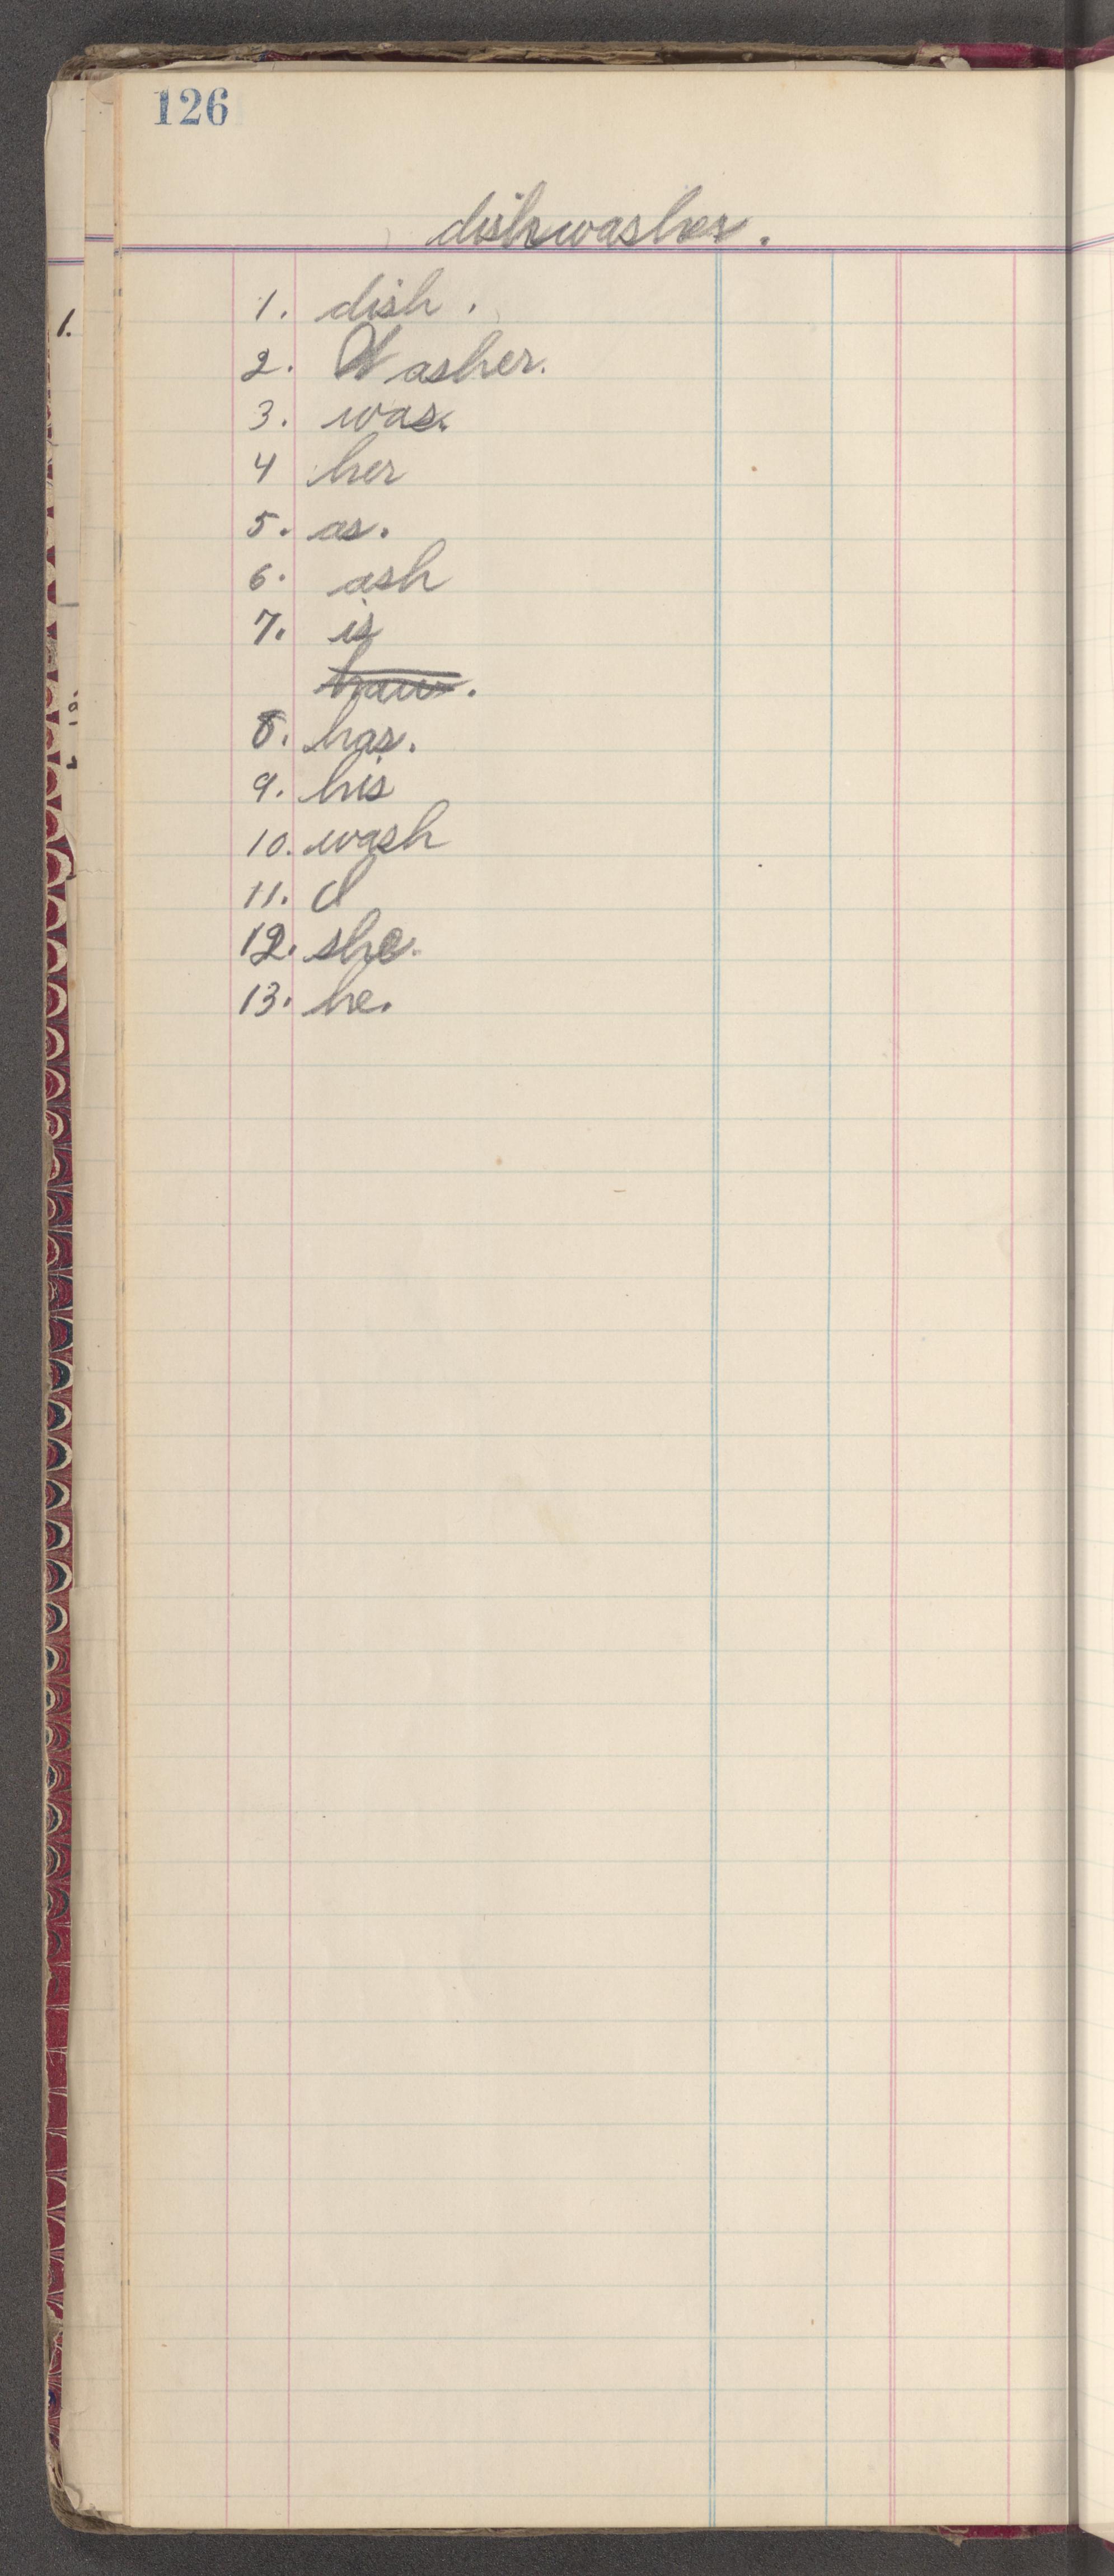 126
dishwasher.
1. dish.
2. Washer.
3. was.
4 her
5. as.
6. ash
7. is
8. has.
9. his
10. wash
11. I
12. she.
13. he.
1.